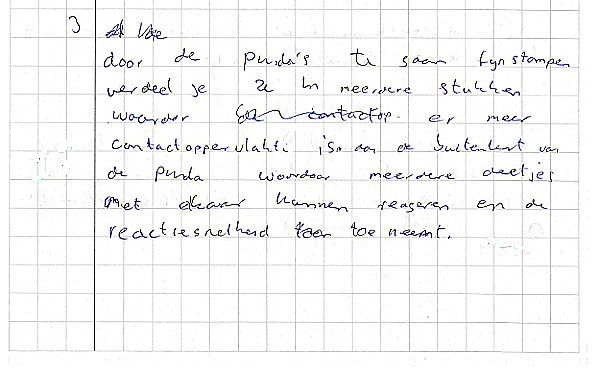 3
door de pinda's te gaan fynstampen
verdeel je ze in meerdere stukken
waardoor er meer
contactoppervlakte is aan de buitenkant van
de pinda waardoor meerdere deeltjes
met elkaar kunnen reageren en de
reactiesnelheid toe neemt.